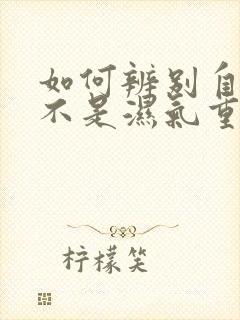 如何辨别自
不是濕氣重
柠檬笑